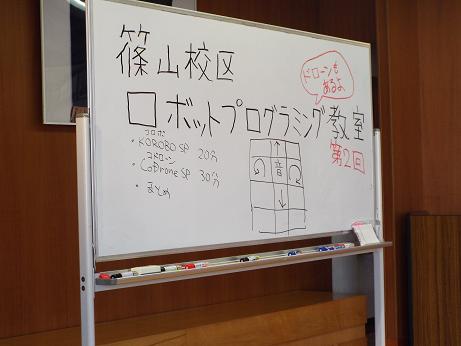 篠山校区
ドローンも
あるよ
ロボットプログラミング教室
第2回
コロボ
・KOROBO SP 20分
コドローン
・CoDrone SP 30分
・まとめ
音